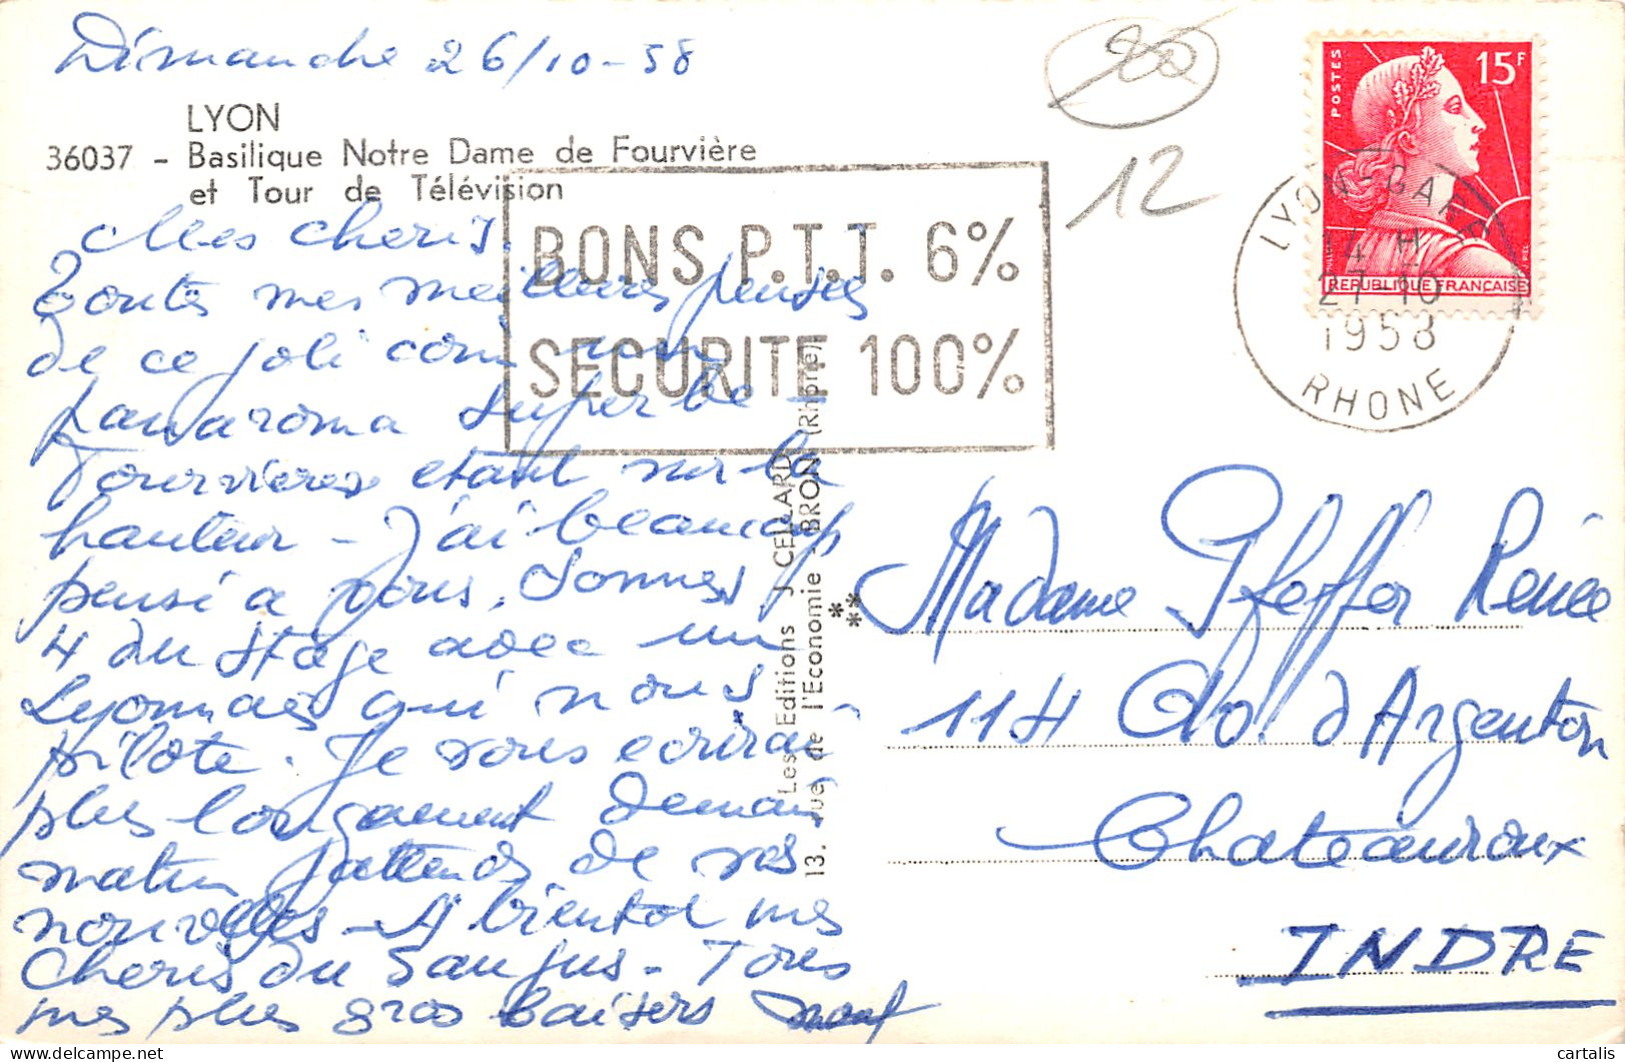 Dimanche 26/10-58
LYON
36037 - Basilique Notre Dame de Fourvière
et Tour de Télévision
Mes cheris.
Toutes mes meilleures pensées
de ce joli coin
panaroma superbe -
Fourvieres etant sur la
hauteur - J'ai beaucoup
pensé a vous. Sommes
4 du stage avec un
Lyonnais qui nous
pilote. Je vous ecrirai
plus longuement demain
matin J'attends de vos
nouvelles - A bientot mes
Cheris du
mes plus gros baisers
BONS P.T.T. 6%
SECURITE 100%
Les Editions J. CELLARD
13. rue de l'Economie - BRON (Rhône)
**
*
200
12
POSTES
15F
REPUBLIQUE FRANÇAISE
LYON-GARE
14 H
27-10
1958
RHONE
Madame Pfeffer Renée
114 Av. d'Argenton
Chateauroux
INDRE
cartalis
delcampe.net